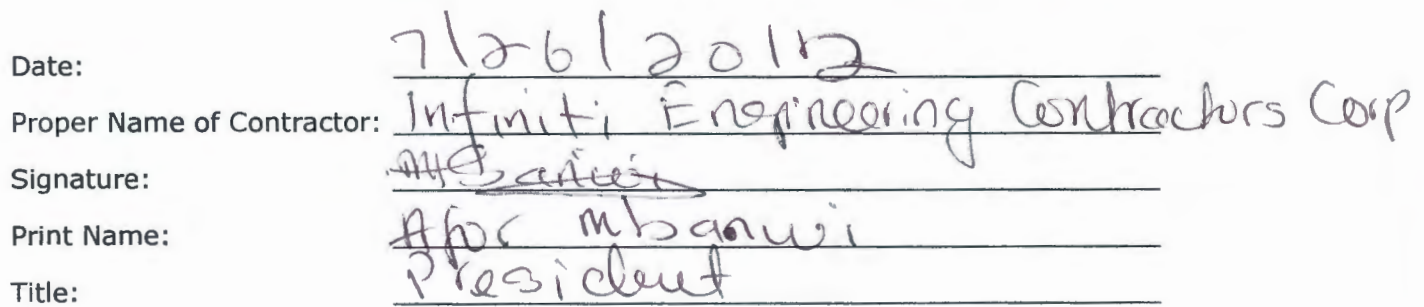 Date: 7/26/2012
Proper Name of Contractor: Infiniti Engineering Contractors Corp
Signature:
Print Name: Afor Mbanwi
Title: President